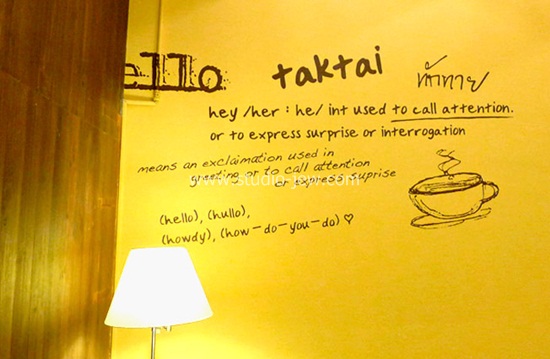 ello taktai ทักทาย
hey /her : he/ int used to call attention.
or to express surprise or interrogation
means an exclaimation used in
greeting or to call attention
or express suprise
(hello), (hullo),
(howdy), (how-do-you-do) ♡